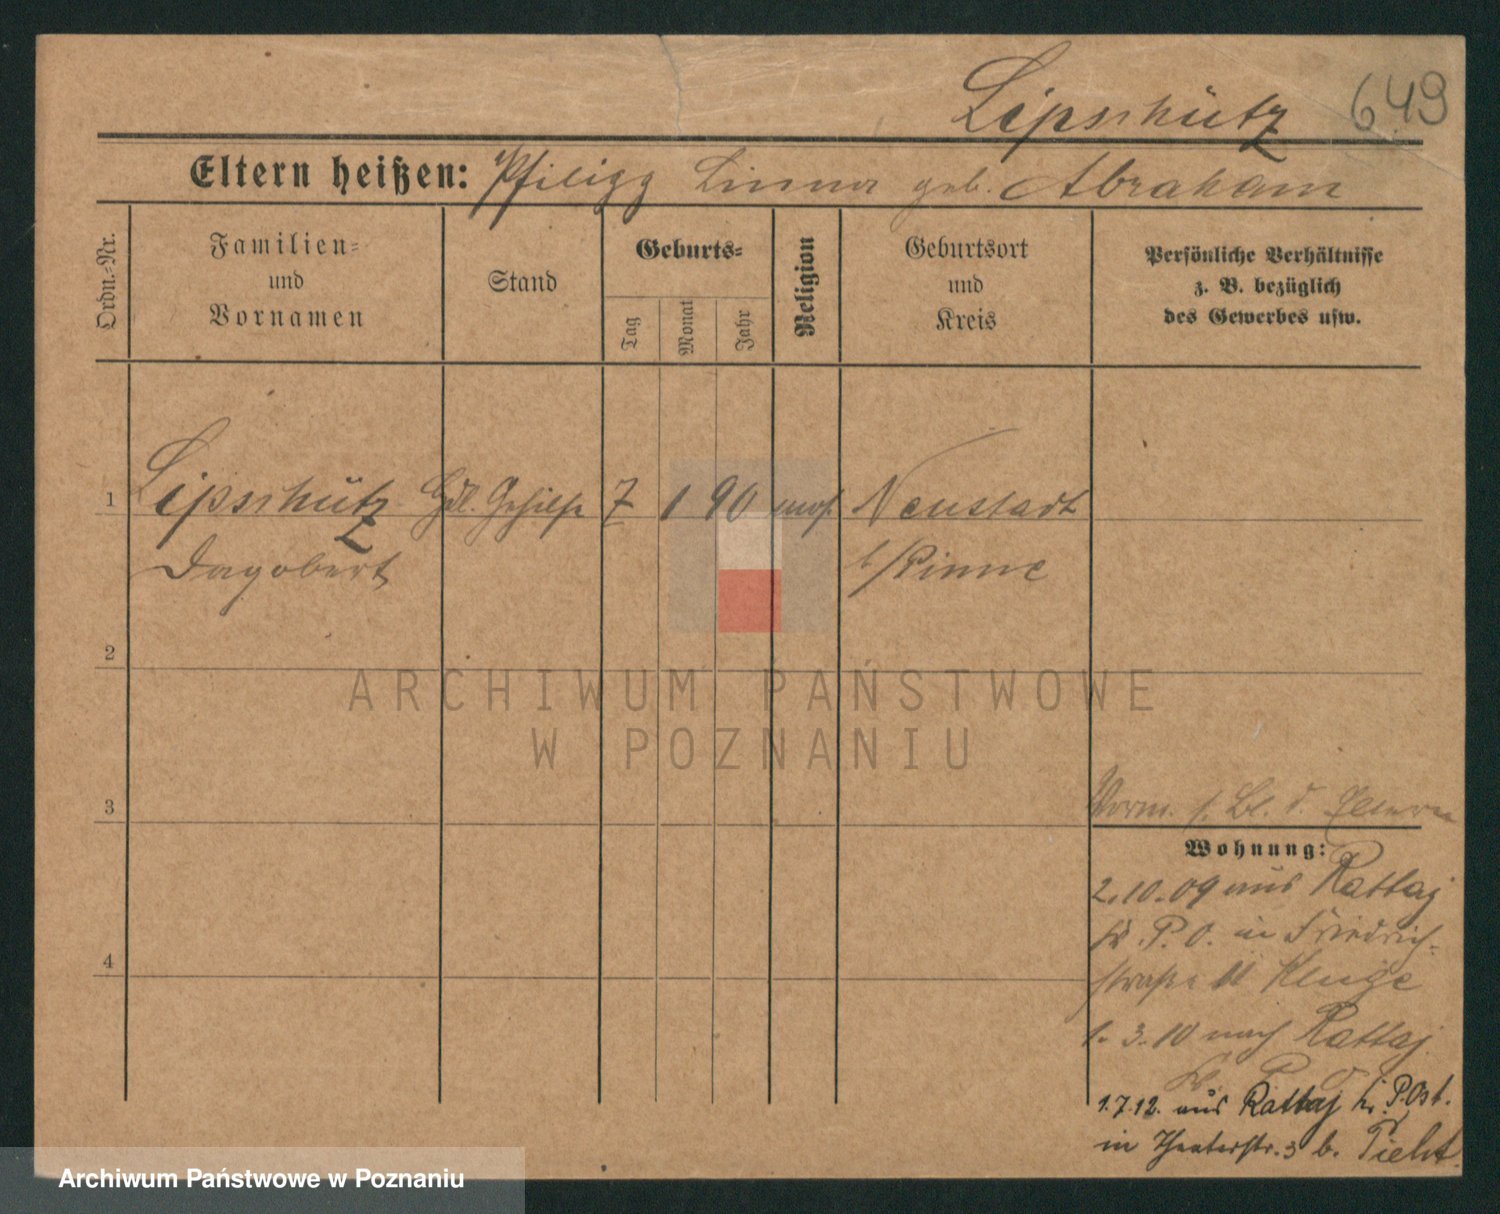 Lipschütz 649
Eltern heißen: Philipp Linna geb. Abraham
Ordn.-Nr.
Familien-
und
Vornamen
Stand
Geburts-
Tag
Monat
Jahr
Religion
Geburtsort
und
Kreis
Persönliche Verhältnisse
z. B. bezüglich
des Gewerbes usw.
1 Lipschütz Hdl. Gehilfe 7 1 90 mos. Neustadt
Dagobert b/Pinne
2
ARCHIWUM PAŃSTWOWE
W POZNANIU
3
Vorm. s. Bl. d. Eltern
Wohnung:
2.10.09 aus Rattaj
Kr. P. O. in Friedrich-
straße 11 Kluge
4
1.3.10 nach Rattaj
Kr. P. O
1.7.12. aus Rattaj kr. P. Ost.
in Theaterstr. 3 b.
Archiwum Państwowe w Poznaniu